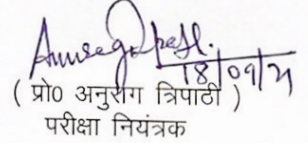 18/09/21
( प्रो0 अनुराग त्रिपाठी )
परीक्षा नियंत्रक